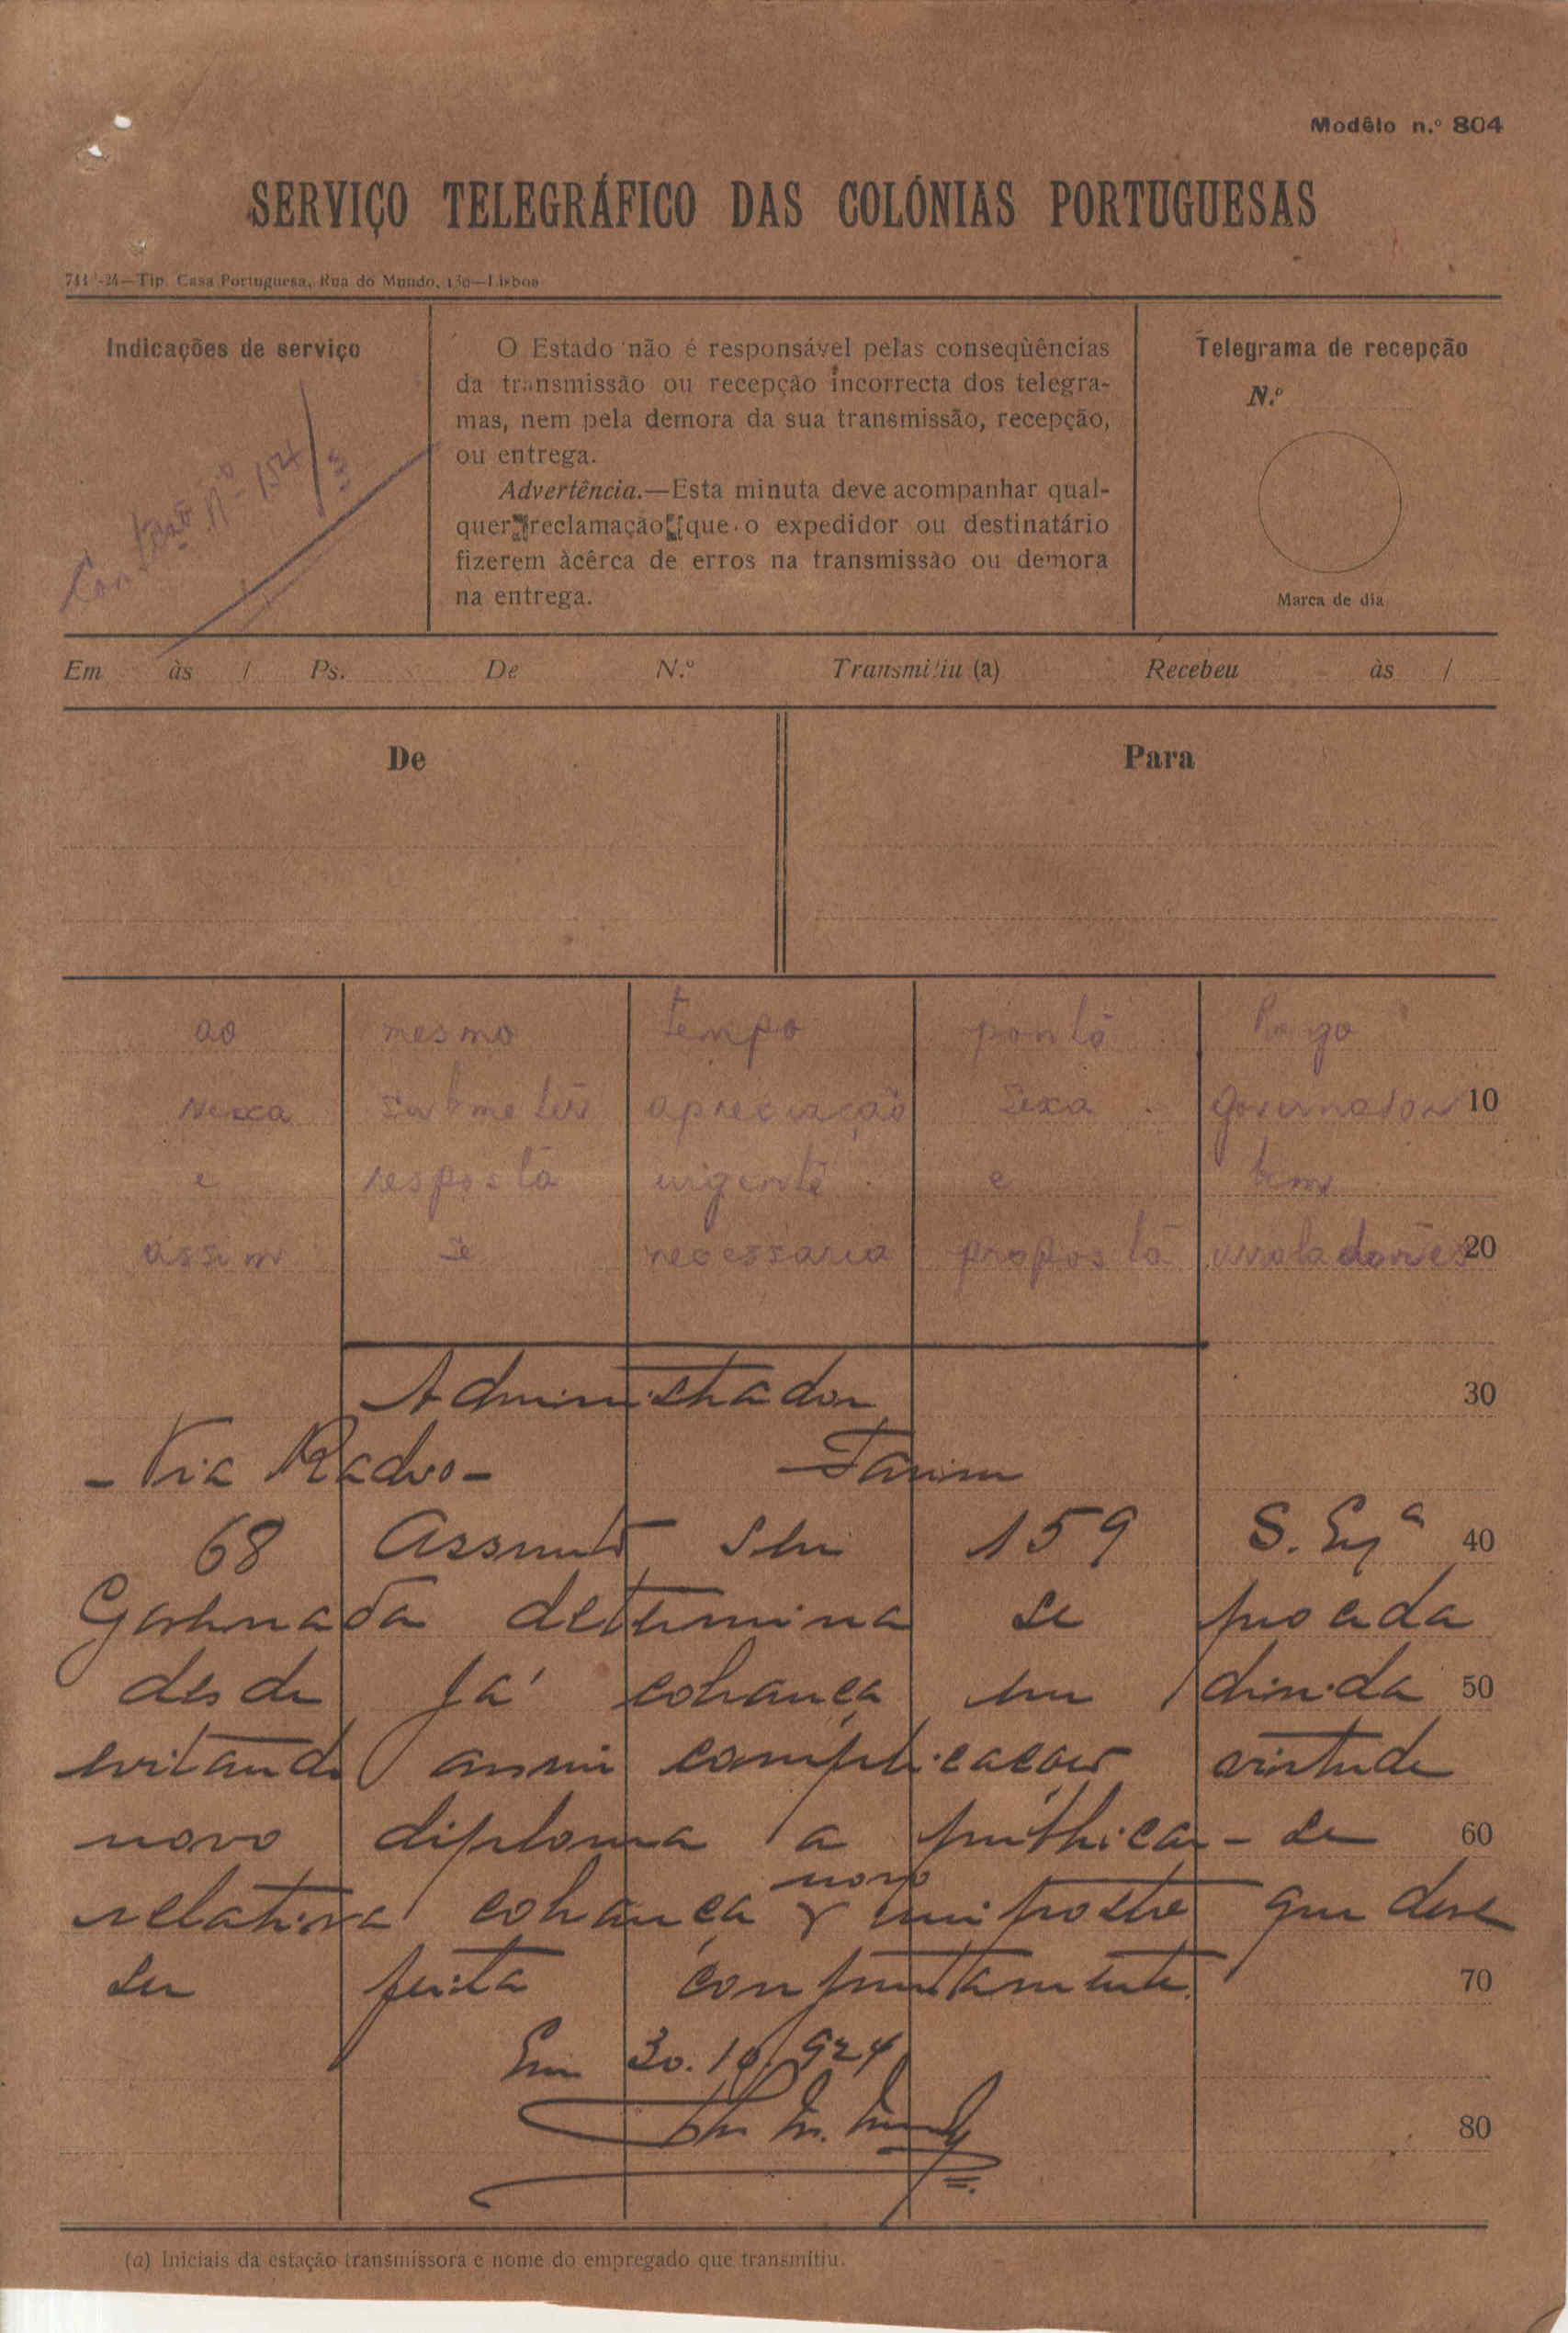 Modêlo n.º 804
SERVIÇO TELEGRÁFICO DAS COLÓNIAS PORTUGUESAS
Tip. Casa Portuguesa, Rua do Mundo, 130—Lisboa
Indicações de serviço
O Estado não é responsável pelas conseqùências
da transmissão ou recepção incorrecta dos telegra-
mas, nem pela demora da sua transmissão, recepção,
ou entrega.
Advertência.—Esta minuta deve acompanhar qual-
quer reclamação que o expedidor ou destinatário
fizerem àcêrca de erros na transmissão ou demora
na entrega.
Telegrama de recepção
N.º
Marca de dia
Em às / Ps. De N.º Transmitiu (a) Recebeu às /
De Para
ao mesmo tempo ponto Rogo
vexa submeter apreciação sexa governador 10
e resposta urgente e bem
assim se necessaria proposta 20
Administrador 30
- Via Radio - Farim
68 Assunto seu 159 S. Exª 40
Governador determina se proceda
desde já cobrança em divida 50
evitando assim complicacoes virtude
novo diploma a publicar-se 60
relativa cobrança novo imposto que deve
ser feita conjuntamente 70
Em 30.10/924
80
(a) Iniciais da estação transmissora e nome do empregado que transmitiu.